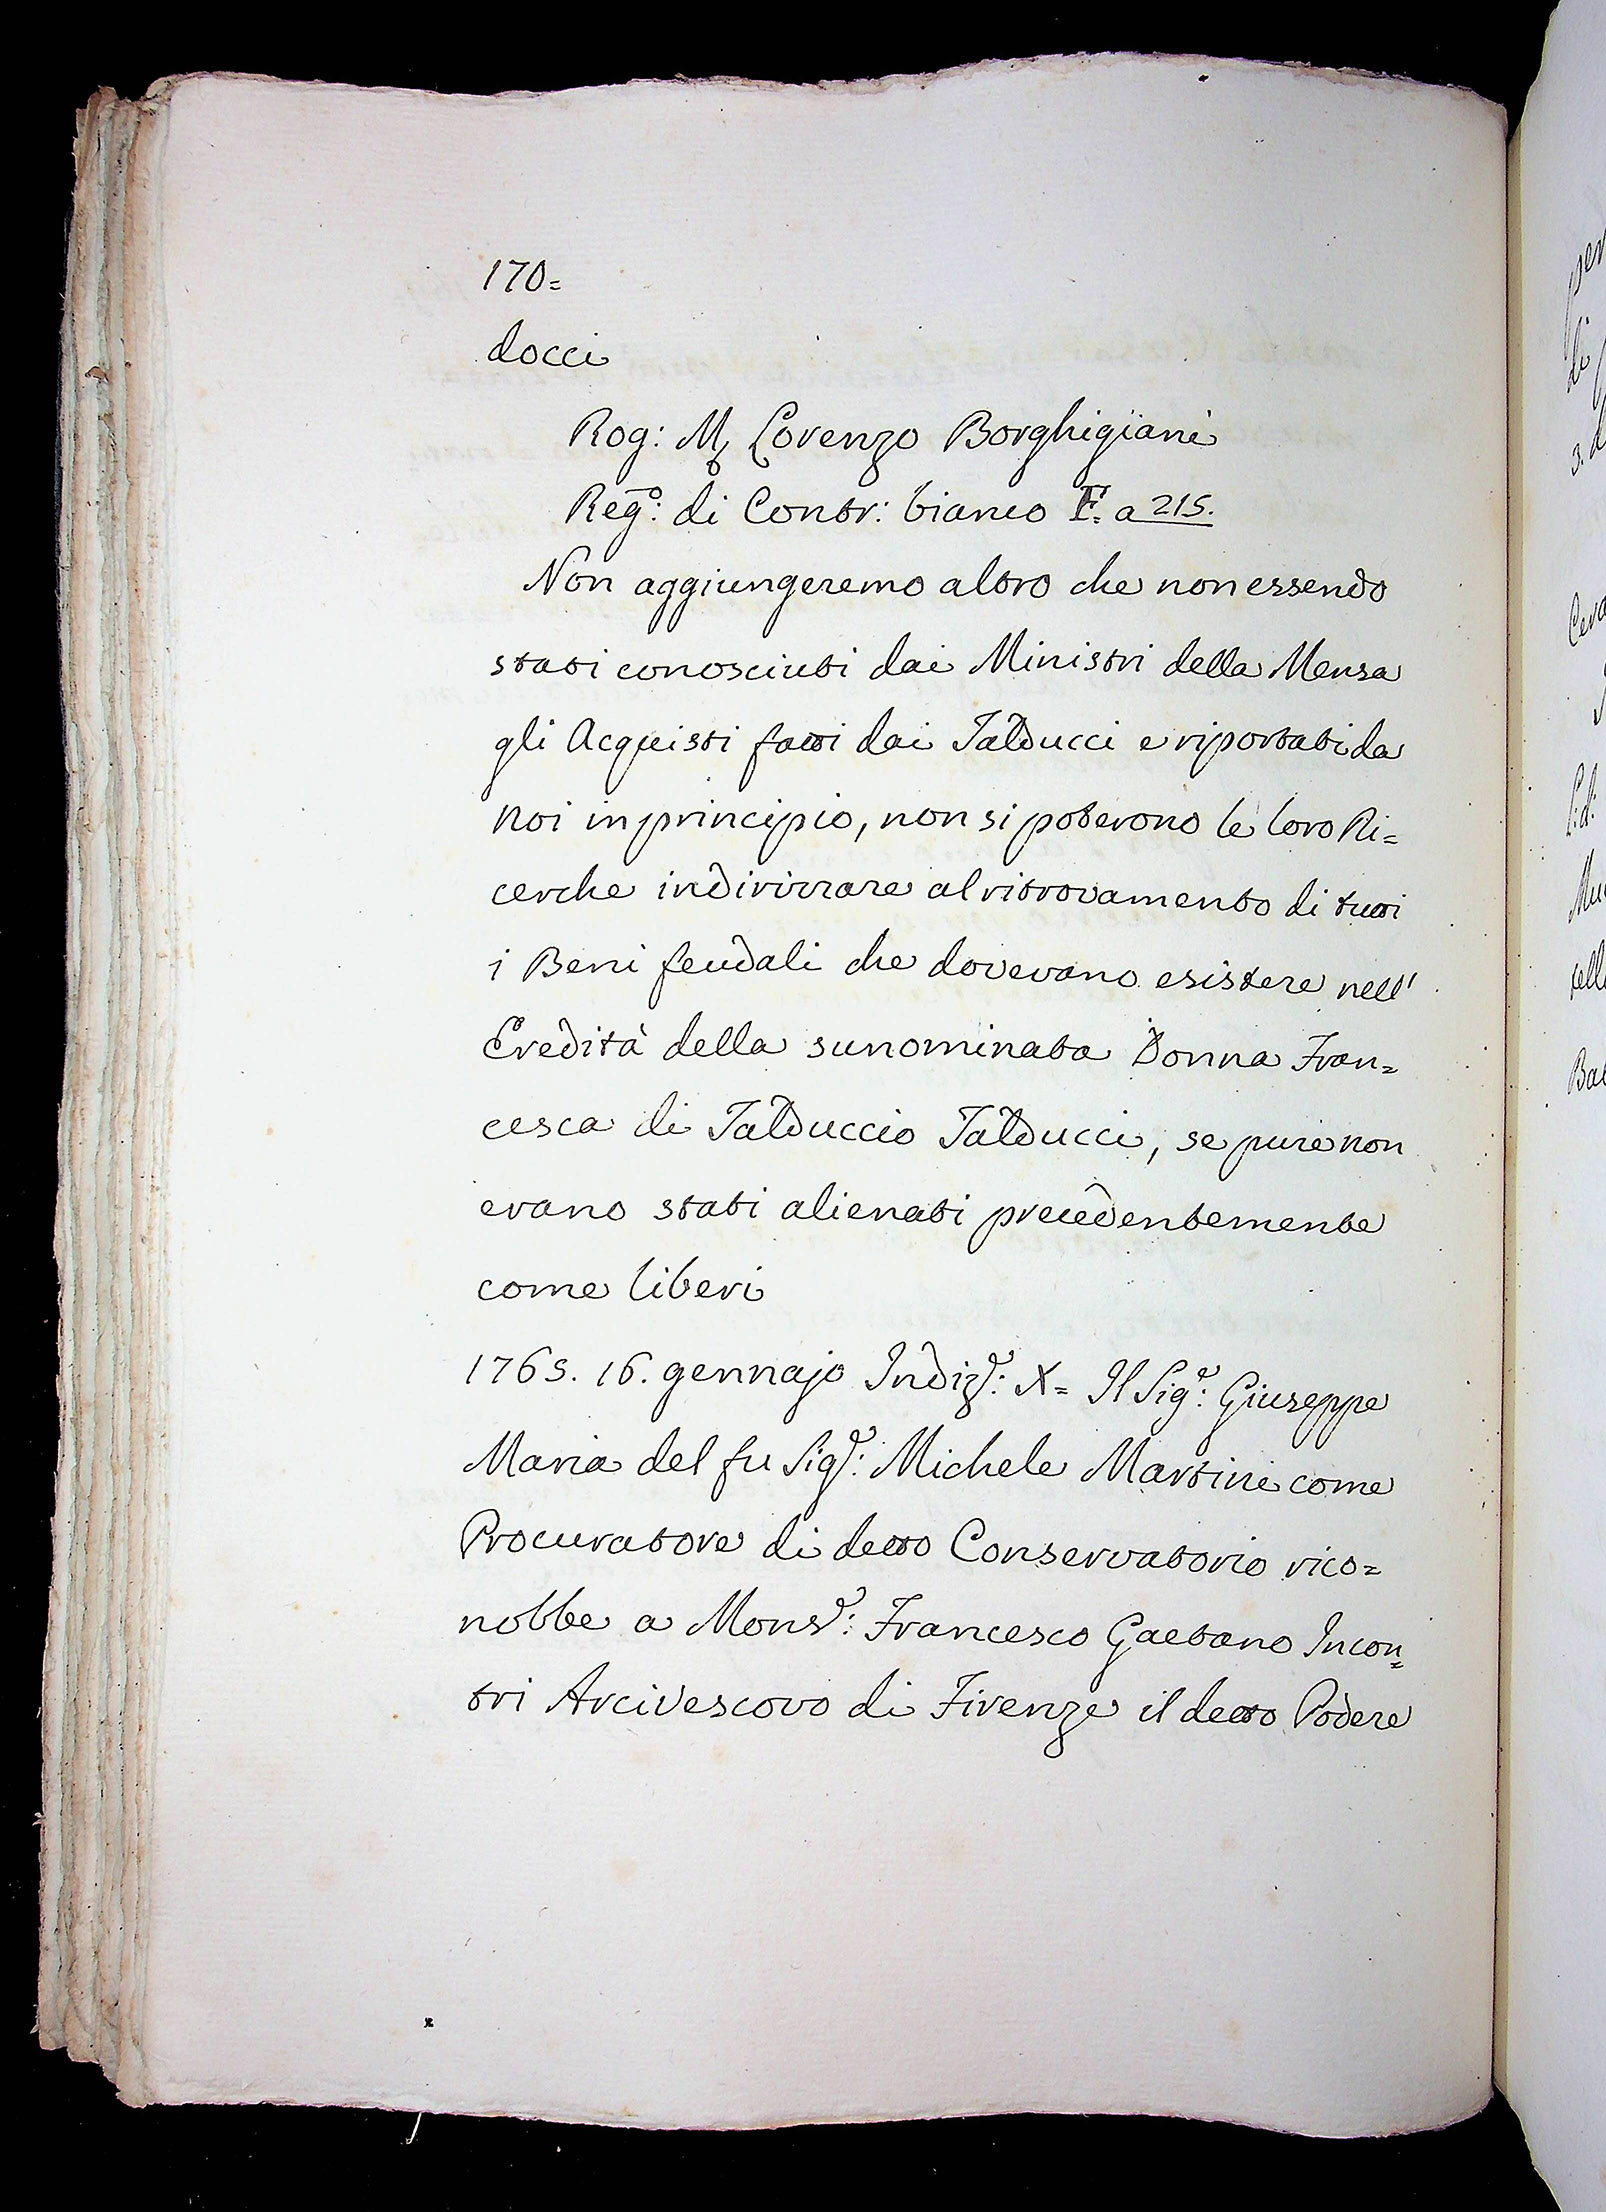 170=
docci
Rog: M Lorenzo Borghigiani
Reg.o: di Contr: bianco F. a 215.
Non aggiungeremo altro che non essendo
stati conosciuti dai Ministri della Mensa
gli Acquisti fatti dai Talducci e riportati da
noi in principio, non si poterono le loro Ri=
cerche indirizzare al ritrovamento di tutti
i Beni feudali che dovevano esistere nell'
Eredità della sunominata Donna Fran=
cesca di Talduccio Talducci, se pure non
erano stati alienati precedentemente
come liberi
1765. 16. gennajo Indiz.e: X= Il Sig.e: Giuseppe
Maria del fu Sig.e: Michele Martini come
Procuratore di detto Conservatorio rico=
nobbe a Mons.e: Francesco Gaetano Incon=
tri Arcivescovo di Firenze il detto Podere
di
3. d